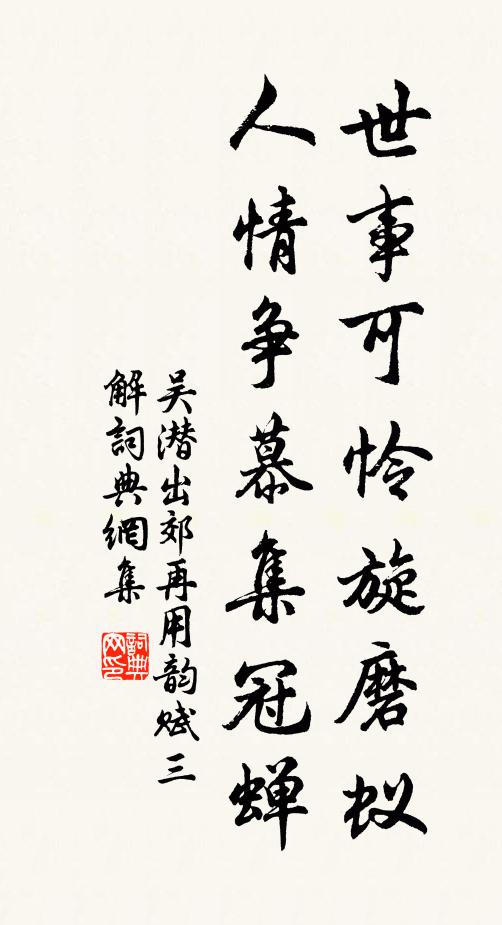 世事可怜旋磨蚁
人情争慕集冠蝉
吴潜出郊再用韵赋三
解詞典網集
詞典网印